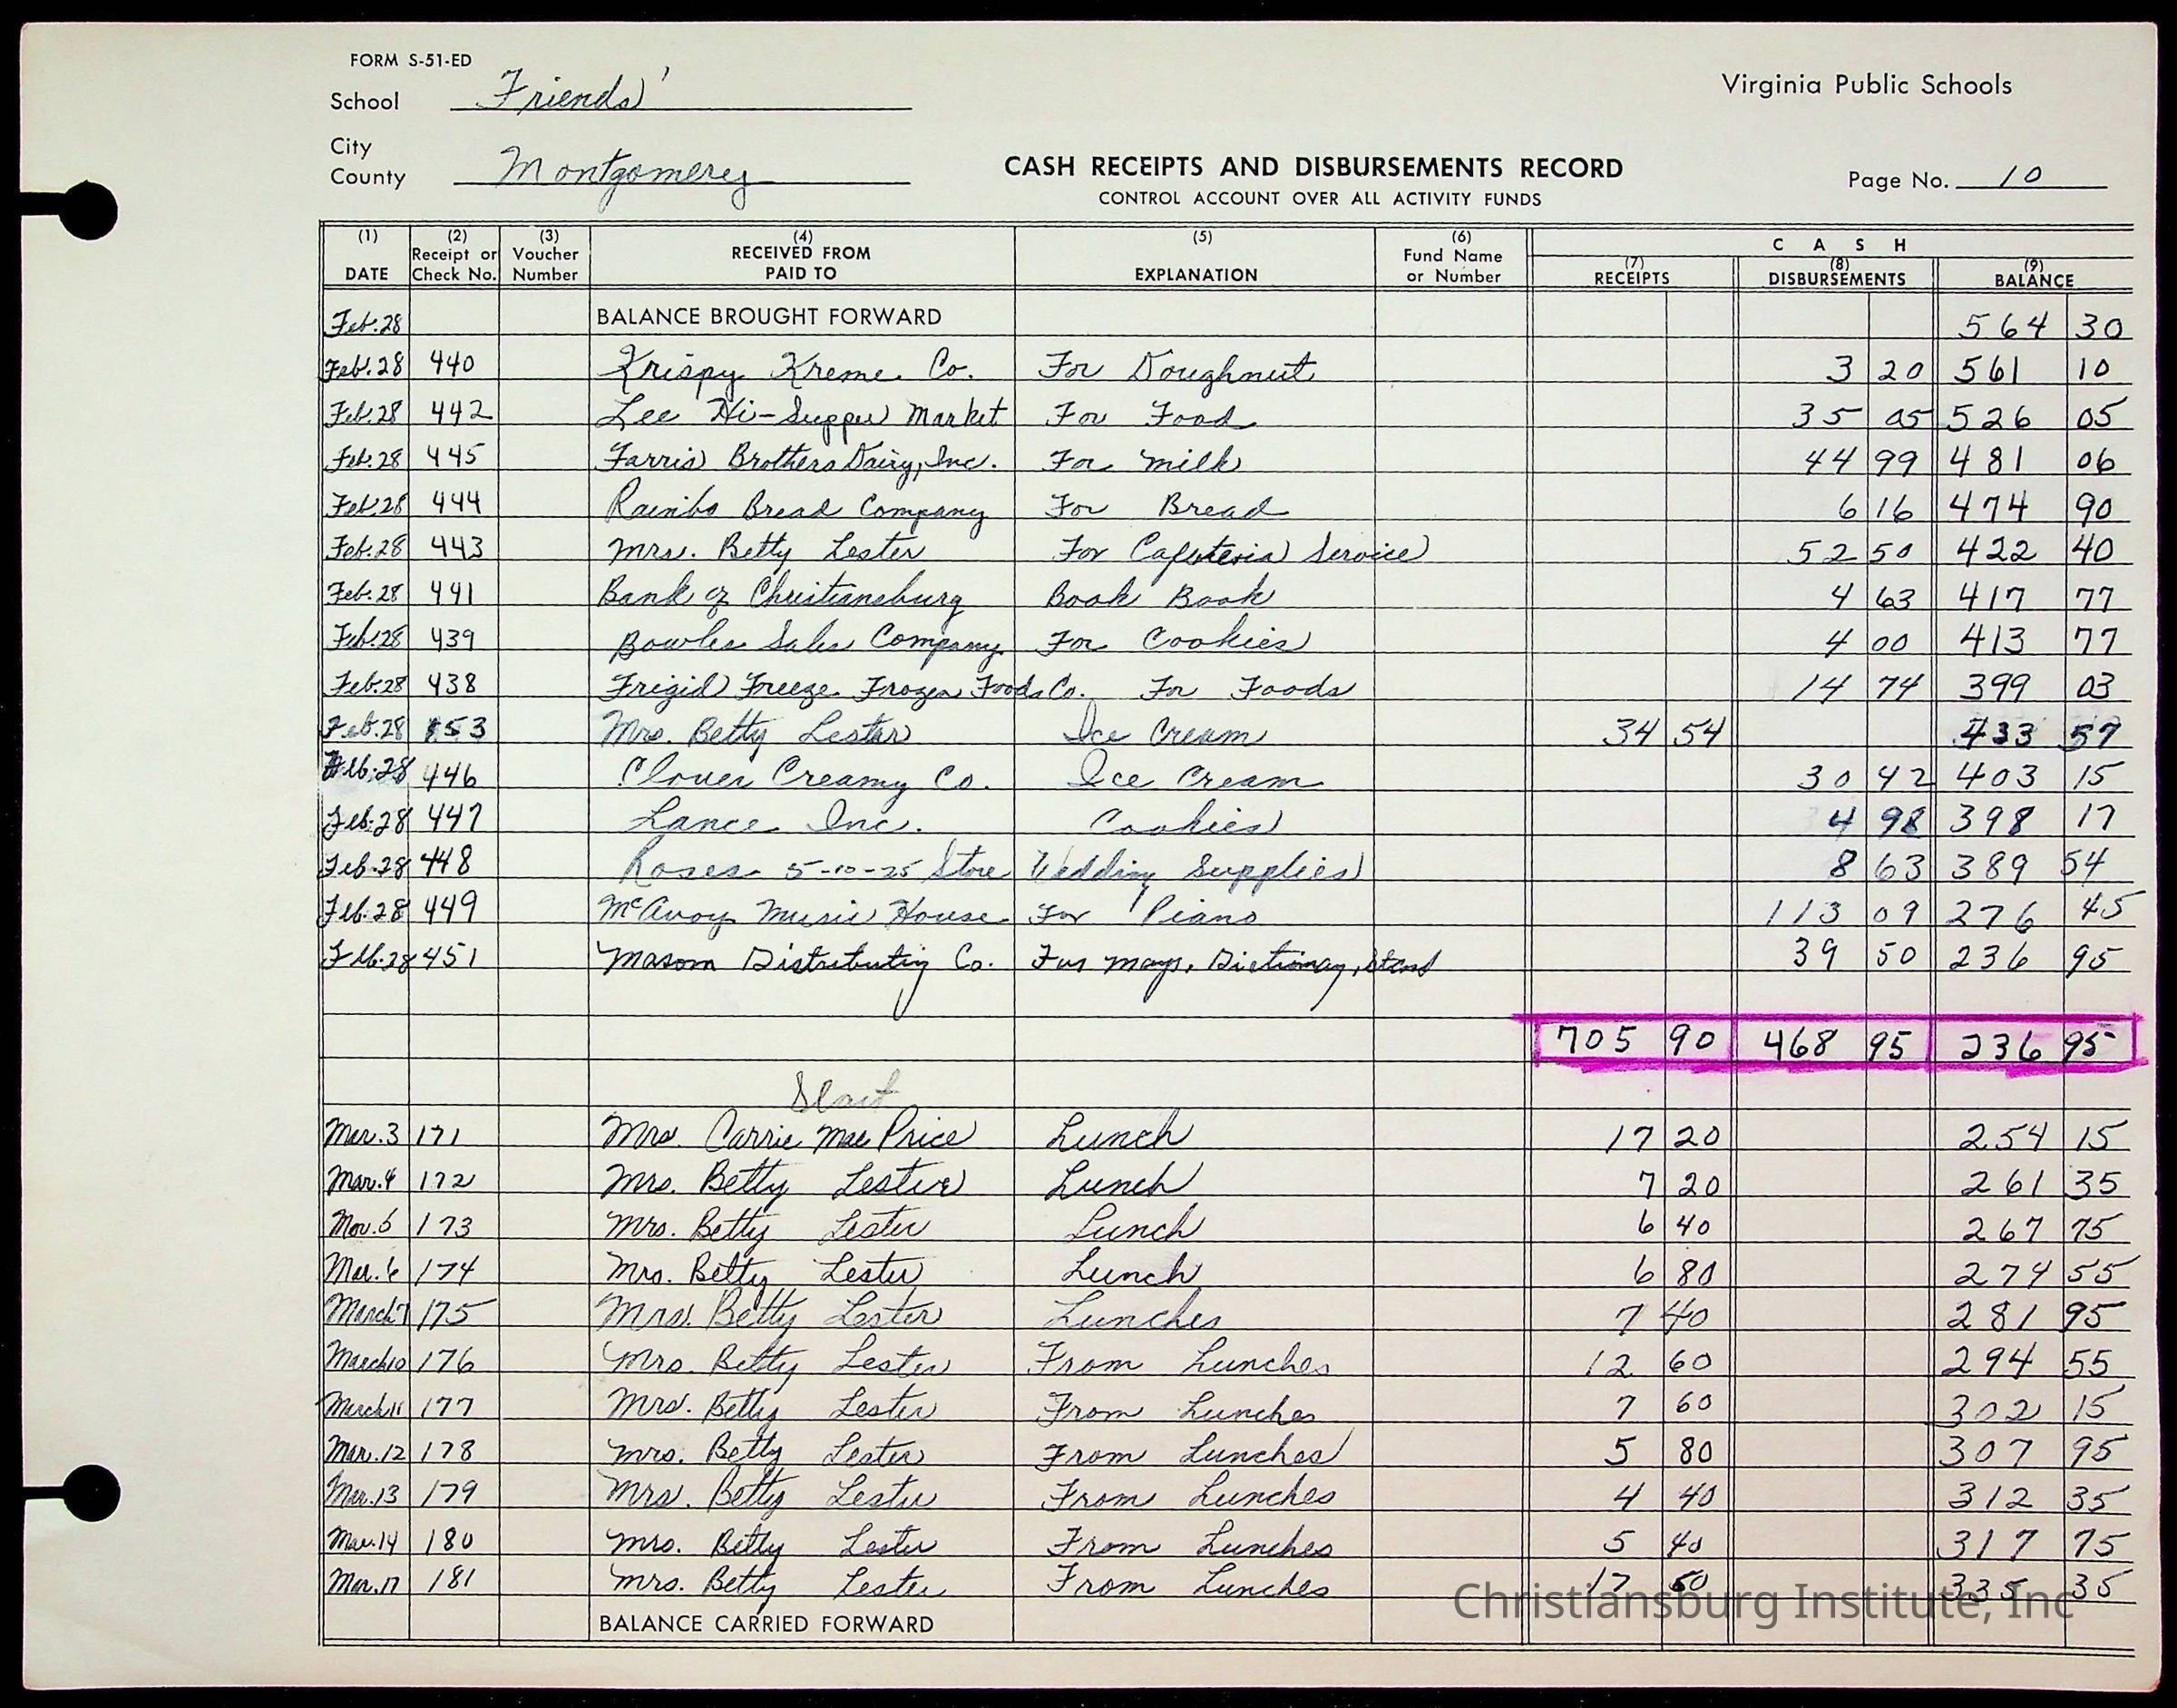 FORM S-51-ED
School Friends'
Virginia Public Schools
City
County Montgomery
CASH RECEIPTS AND DISBURSEMENTS RECORD
CONTROL ACCOUNT OVER ALL ACTIVITY FUNDS
Page No. 10
(1) DATE (2) Receipt or Check No. (3) Voucher Number (4) RECEIVED FROM PAID TO (5) EXPLANATION (6) Fund Name or Number CASH (7) RECEIPTS (8) DISBURSEMENTS (9) BALANCE
Feb. 28 BALANCE BROUGHT FORWARD 564 30
Feb. 28 440 Krispy Kreme Co. For Doughnut 3 20 561 10
Feb. 28 442 Lee Hi-Supper Market For Food 35 05 526 05
Feb. 28 445 Farris Brothers Dairy, Inc. For milk 44 99 481 06
Feb. 28 444 Rainbo Bread Company For Bread 6 16 474 90
Feb. 28 443 Mrs. Betty Lester For Cafeteria Service 52 50 422 40
Feb. 28 441 Bank of Christiansburg Book Book 4 63 417 77
Feb. 28 439 Bowles Sales Company For Cookies 4 00 413 77
Feb. 28 438 Frigid Freeze Frozen Foods Co. For Foods 14 74 399 03
Feb. 28 153 Mrs. Betty Lester Ice Cream 34 54 433 57
Feb. 28 446 Clover Creamy Co. Ice Cream 30 42 403 15
Feb. 28 447 Lance Inc. Cookies 4 98 398 17
Feb. 28 448 Roses 5-10-25 Store Wedding Supplies 8 63 389 54
Feb. 28 449 McAvoy Music House For Piano 113 09 276 45
Feb. 28 451 Mason Distributing Co. For maps, Dictionary, Stand 39 50 236 95
705 90 468 95 236 95
Mar. 3 171 Mrs. Carrie Mae Price Lunch 17 20 254 15
Mar. 4 172 Mrs. Betty Lester Lunch 7 20 261 35
Mar. 5 173 Mrs. Betty Lester Lunch 6 40 267 75
Mar. 6 174 Mrs. Betty Lester Lunch 6 80 274 55
March 7 175 Mrs. Betty Lester Lunches 7 40 281 95
March 10 176 Mrs. Betty Lester From Lunches 12 60 294 55
March 11 177 Mrs. Betty Lester From Lunches 7 60 302 15
Mar. 12 178 Mrs. Betty Lester From Lunches 5 80 307 95
Mar. 13 179 Mrs. Betty Lester From Lunches 4 40 312 35
Mar. 14 180 Mrs. Betty Lester From Lunches 5 40 317 75
Mar. 17 181 Mrs. Betty Lester From Lunches 17 60 335 35
Christiansburg Institute, Inc
BALANCE CARRIED FORWARD